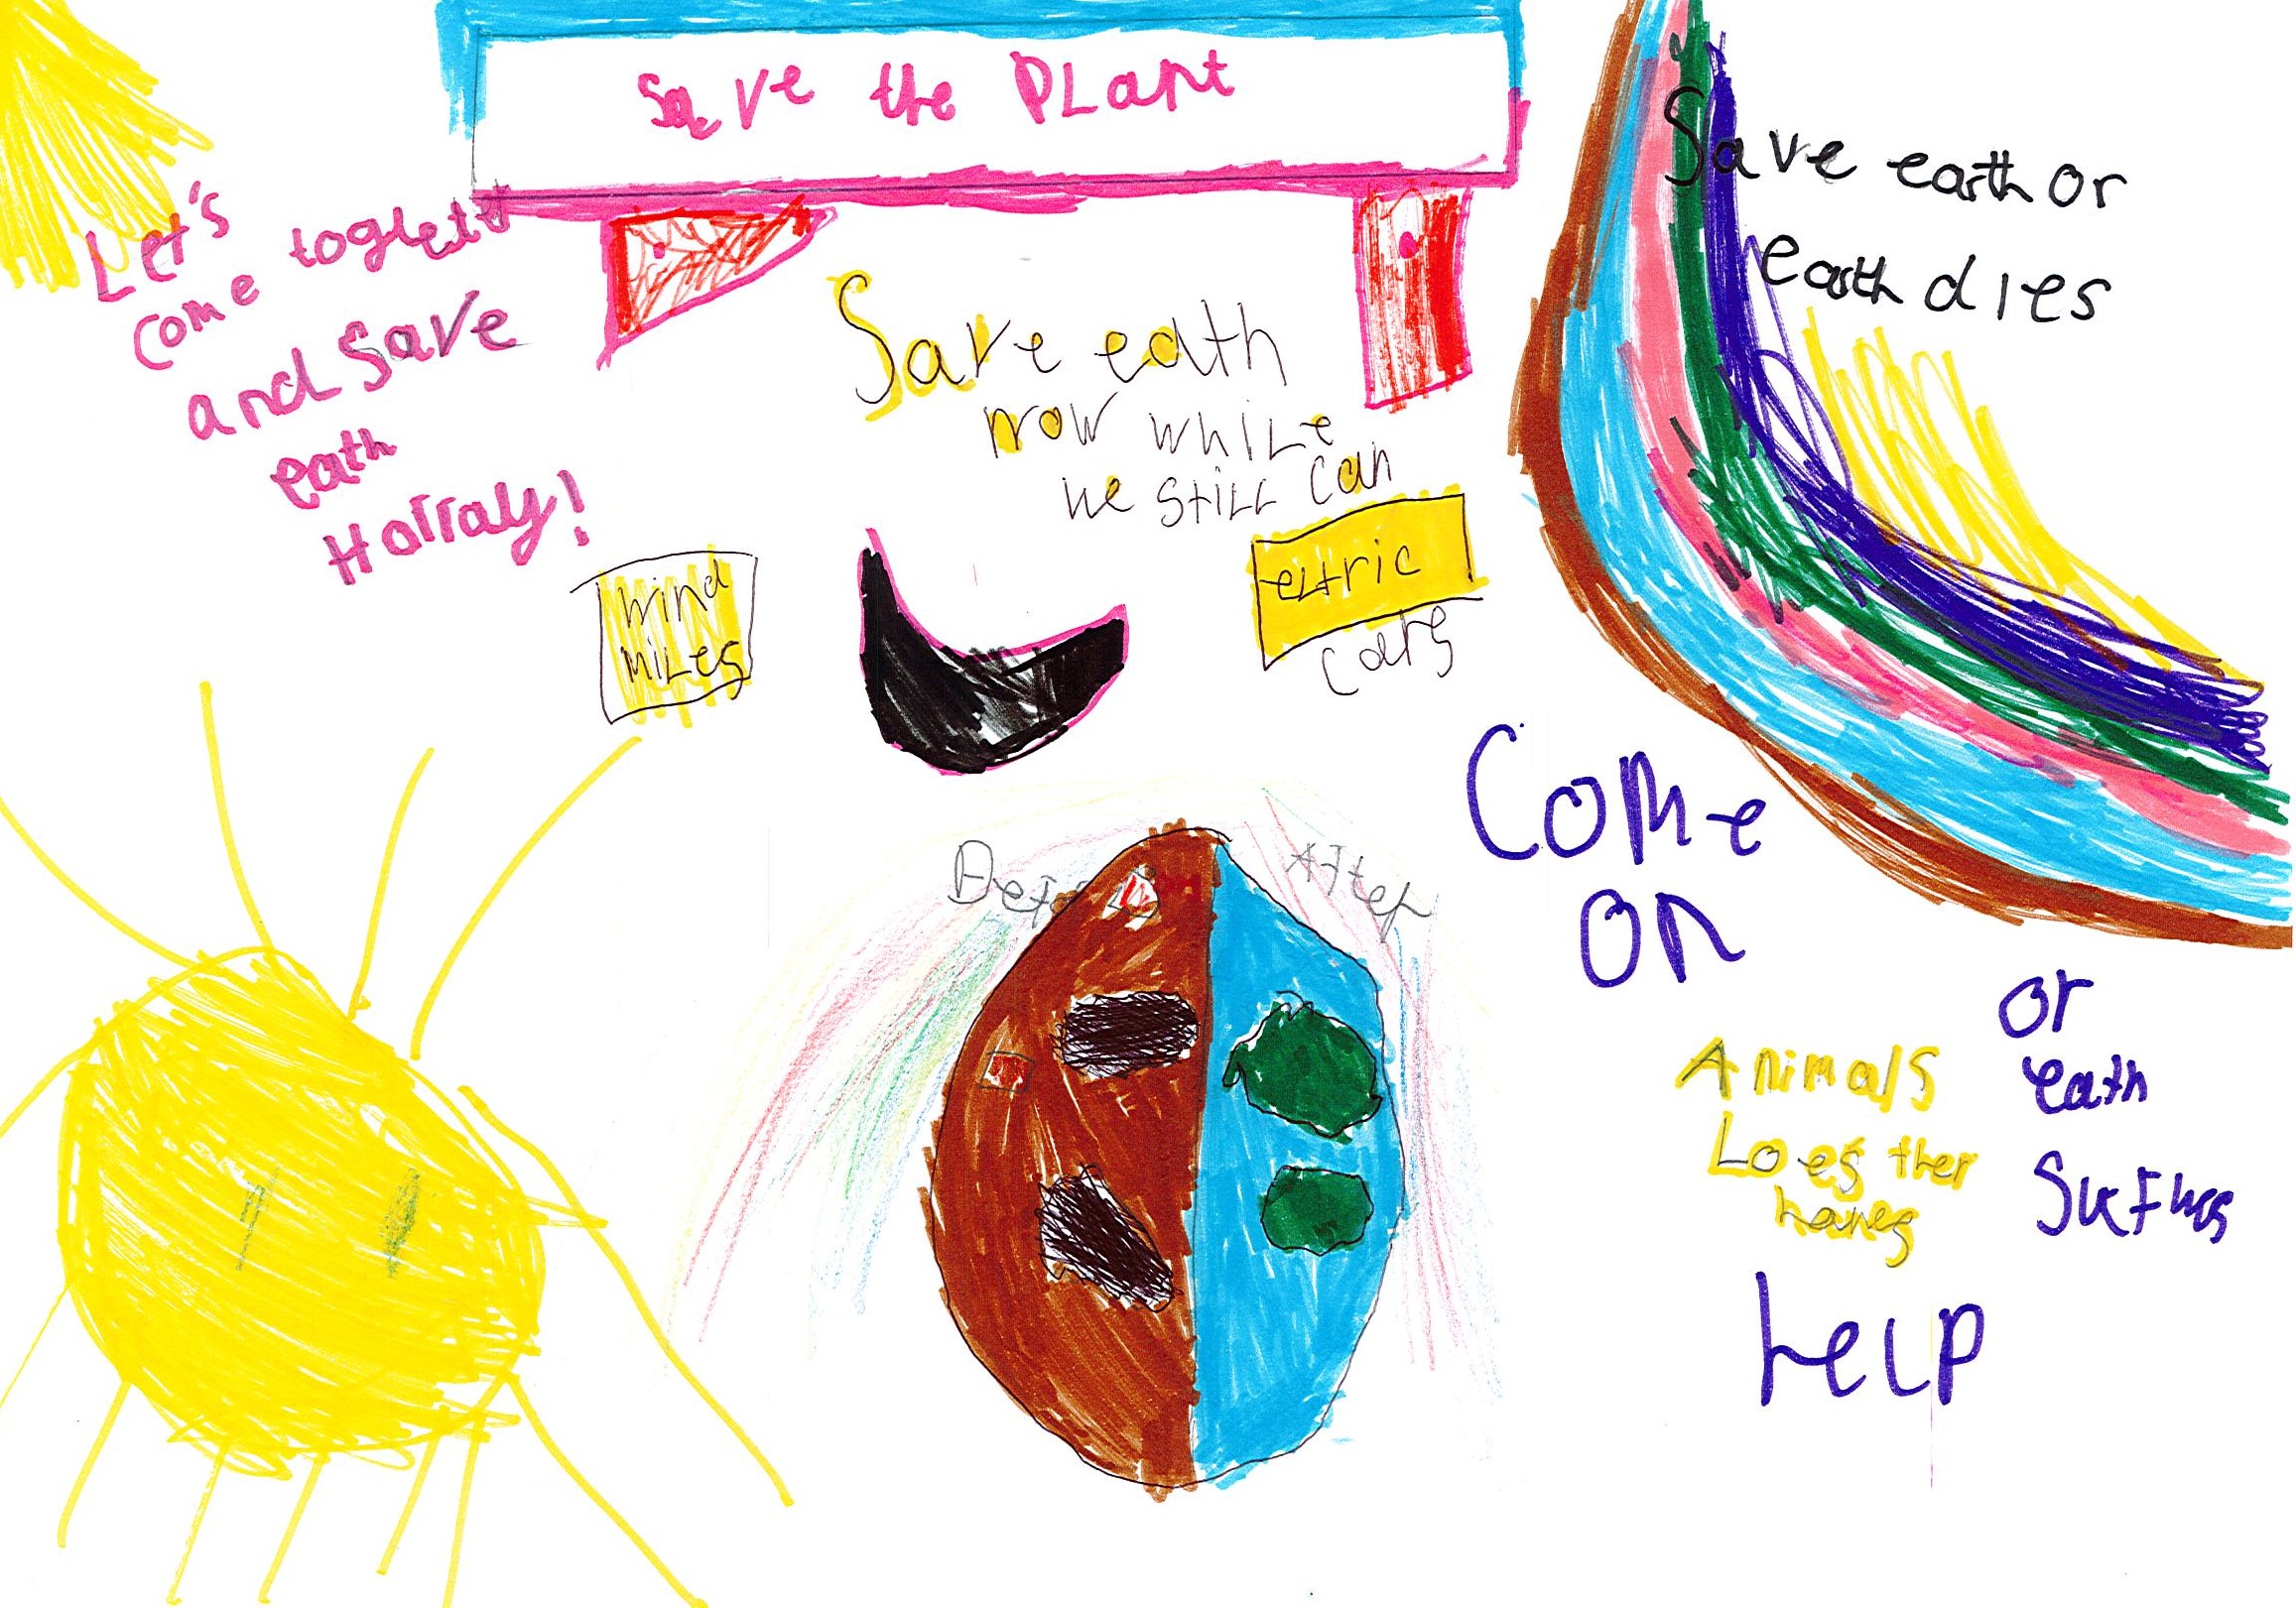 Save the PLant
Let's
come togLett
and save
eath
Horray!
Save eath
now while
we still can
wind
miles
eltric
cars
Save earth or
earth dies
Come
on
Before
After
or
eath
Animals
Loes ther
homes
help